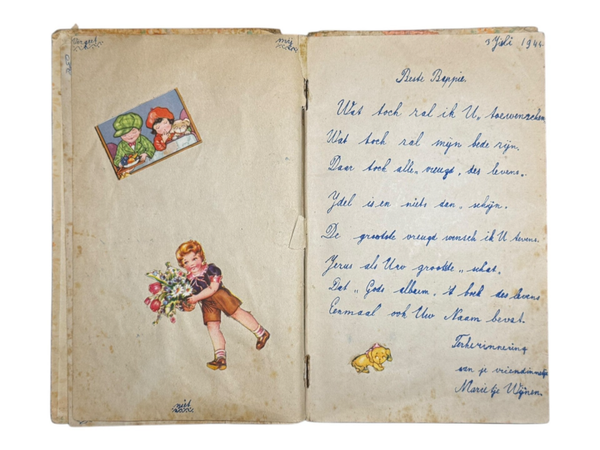 Vergeet
mij
niet
3 Juli 194
Beste Beppie.
Wat toch zal ik U, toewenschen
Wat toch zal mijn bede zijn,
Daar toch alle „vreugd, des levens„
Ydel is en niets dan „ schijn.
De grootste vreugd wensch ik U tevens
Jezus als Uw grootste „ schat.
Dat „ Gods album, 't boek des levens
Eenmaal ook Uw Naam bevat.
Ter herinnering
van je vriendinnetje
Marietje Wijnen.